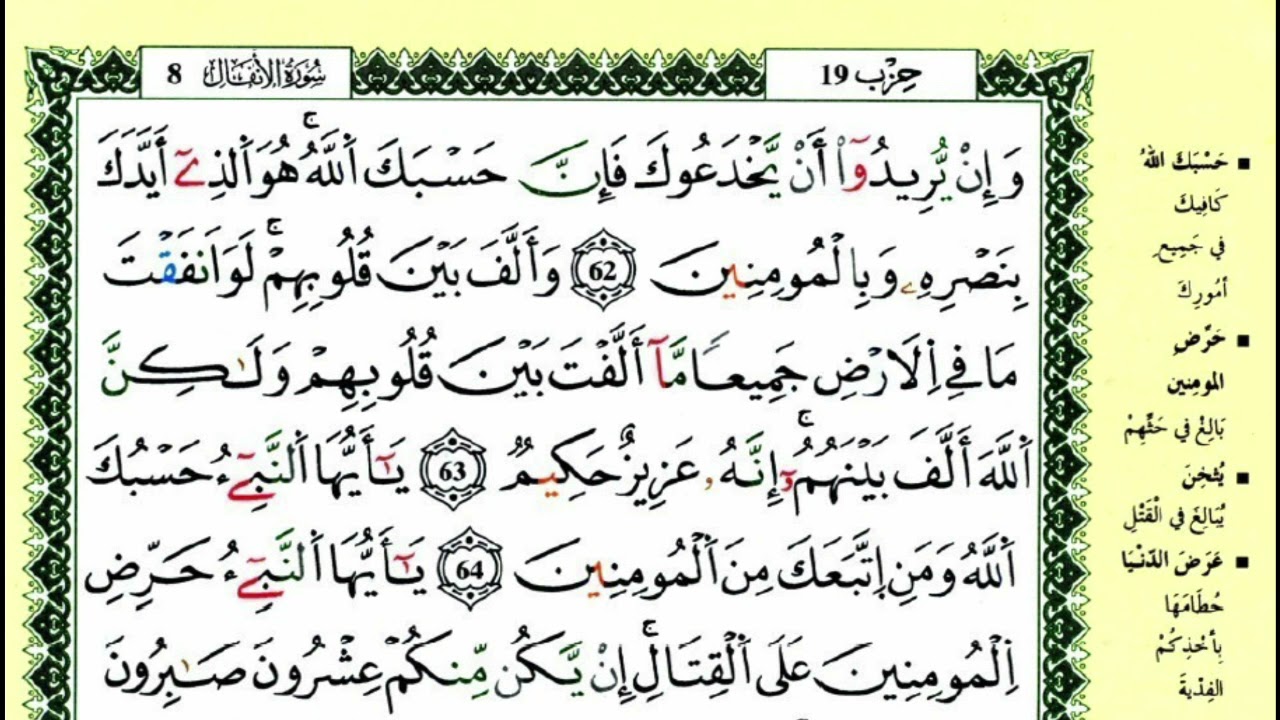 حِزْب 19
سُورَةُ الأنفَال 8
وَإِنْ يُّرِيدُوٓاْ أَنْ يَّخْدَعُوكَ فَإِنَّ حَسْبَكَ اَللَّهُۚ هُوَ اَلذِےٓ أَيَّدَكَ
بِنَصْرِهِۦ وَبِالْمُومِنِينَ 62 وَأَلَّفَ بَيْنَ قُلُوبِهِمْۚ لَوَ اَنفَقْتَ
مَا فِے اِلَارْضِ جَمِيعاٗ مَّآ أَلَّفْتَ بَيْنَ قُلُوبِهِمْ وَلَٰكِنَّ
اَللَّهَ أَلَّفَ بَيْنَهُمُۥٓۚ إِنَّهُۥ عَزِيزٌ حَكِيمٌ 63 يَٰٓأَيُّهَا اَلنَّبِےٓءُ حَسْبُكَ
اَللَّهُ وَمَنِ اِتَّبَعَكَ مِنَ اَلْمُومِنِينَ 64 يَٰٓأَيُّهَا اَلنَّبِےٓءُ حَرِّضِ
اِلْمُومِنِينَ عَلَى اَلْقِتَالِۚ إِنْ يَّكُن مِّنكُمْ عِشْرُونَ صَٰبِرُونَ
حَسْبَكَ اللهُ
كَافِيكَ
فِي جَمِيعِ
أمُورِكَ
حَرِّضِ
المومِنِين
بَالِغْ في حَثِّهِمْ
يُثْخِنَ
يُبَالِغَ في الْقَتْلِ
عَرَضَ الدّنْيَا
حُطَامَهَا
بِأخْذِكُمْ
الفِدْيَةَ